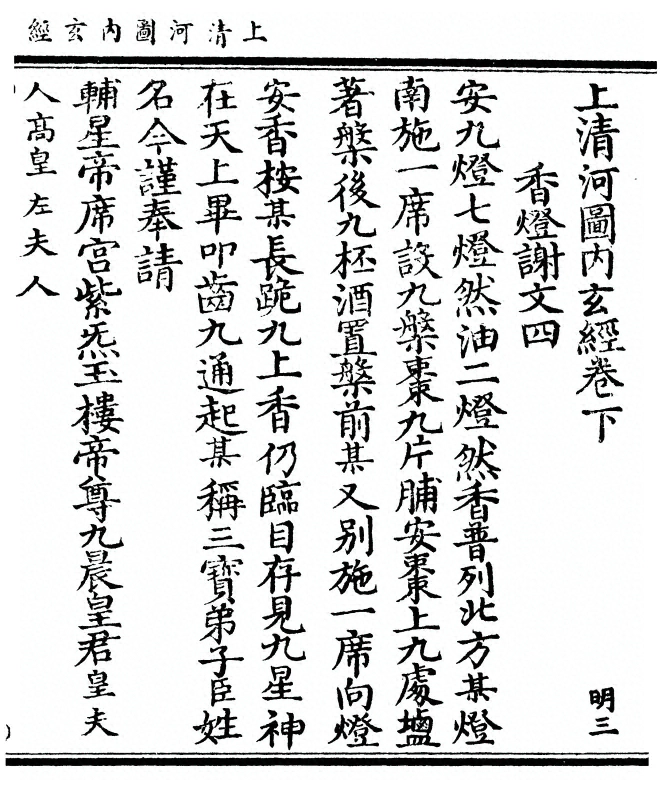 上清河圖內玄經
上清河圖內玄經卷下
明三
香燈謝文四
安九燈七燈然油二燈然香普列北方某燈
南施一席設九槃棗九片脯安棗上九處𪉩
著槃後九杯酒置槃前某又別施一席向燈
安香按某長跪九上香仍臨目存見九星神
在天上畢叩齒九通起某稱三寶弟子臣姓
名今謹奉請
輔星帝席宮紫炁玉樓帝尊九晨皇君皇夫
人高皇左夫人